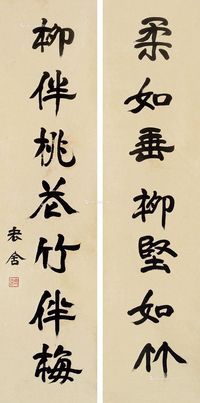 柔如垂柳堅如竹
柳伴桃花竹伴梅
老舍